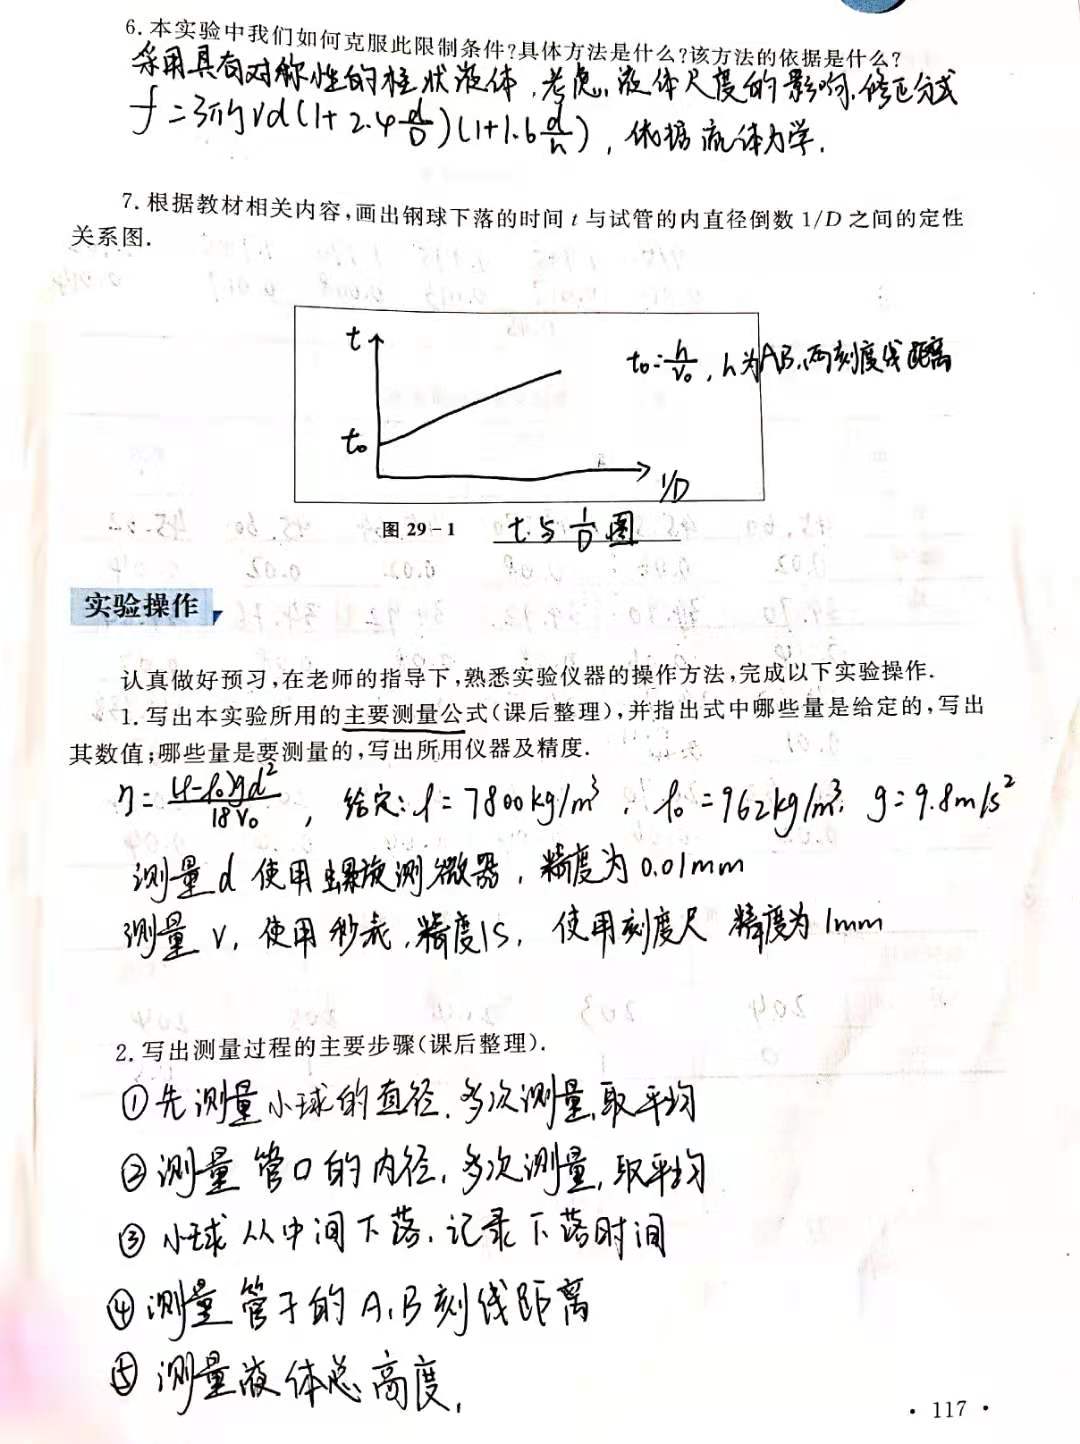 6.本实验中我们如何克服此限制条件?具体方法是什么?该方法的依据是什么?
采用具有对称性的柱状液体,考虑液体尺度的影响,修正公式
f=3πηvd(1+2.4 d/D)(1+1.6 d/h),依据流体力学.
7.根据教材相关内容,画出钢球下落的时间 t 与试管的内直径倒数 1/D 之间的定性
关系图.
t
t₀=h/v₀,h为AB两刻度线距离
t₀
1/D
图 29-1 t与1/D图
实验操作
认真做好预习,在老师的指导下,熟悉实验仪器的操作方法,完成以下实验操作.
1.写出本实验所用的主要测量公式(课后整理),并指出式中哪些量是给定的,写出
其数值;哪些量是要测量的,写出所用仪器及精度.
η=(ρ-ρ₀)gd²/18v₀,给定:ρ=7800kg/m³,ρ₀=962kg/m³,g=9.8m/s²
测量d使用螺旋测微器,精度为0.01mm
测量v,使用秒表,精度1s,使用刻度尺 精度为1mm
2.写出测量过程的主要步骤(课后整理).
①先测量小球的直径,多次测量,取平均
②测量管口的内径,多次测量,取平均
③小球从中间下落,记录下落时间
④测量管子的A,B刻线距离
⑤测量液体总高度,
·117·